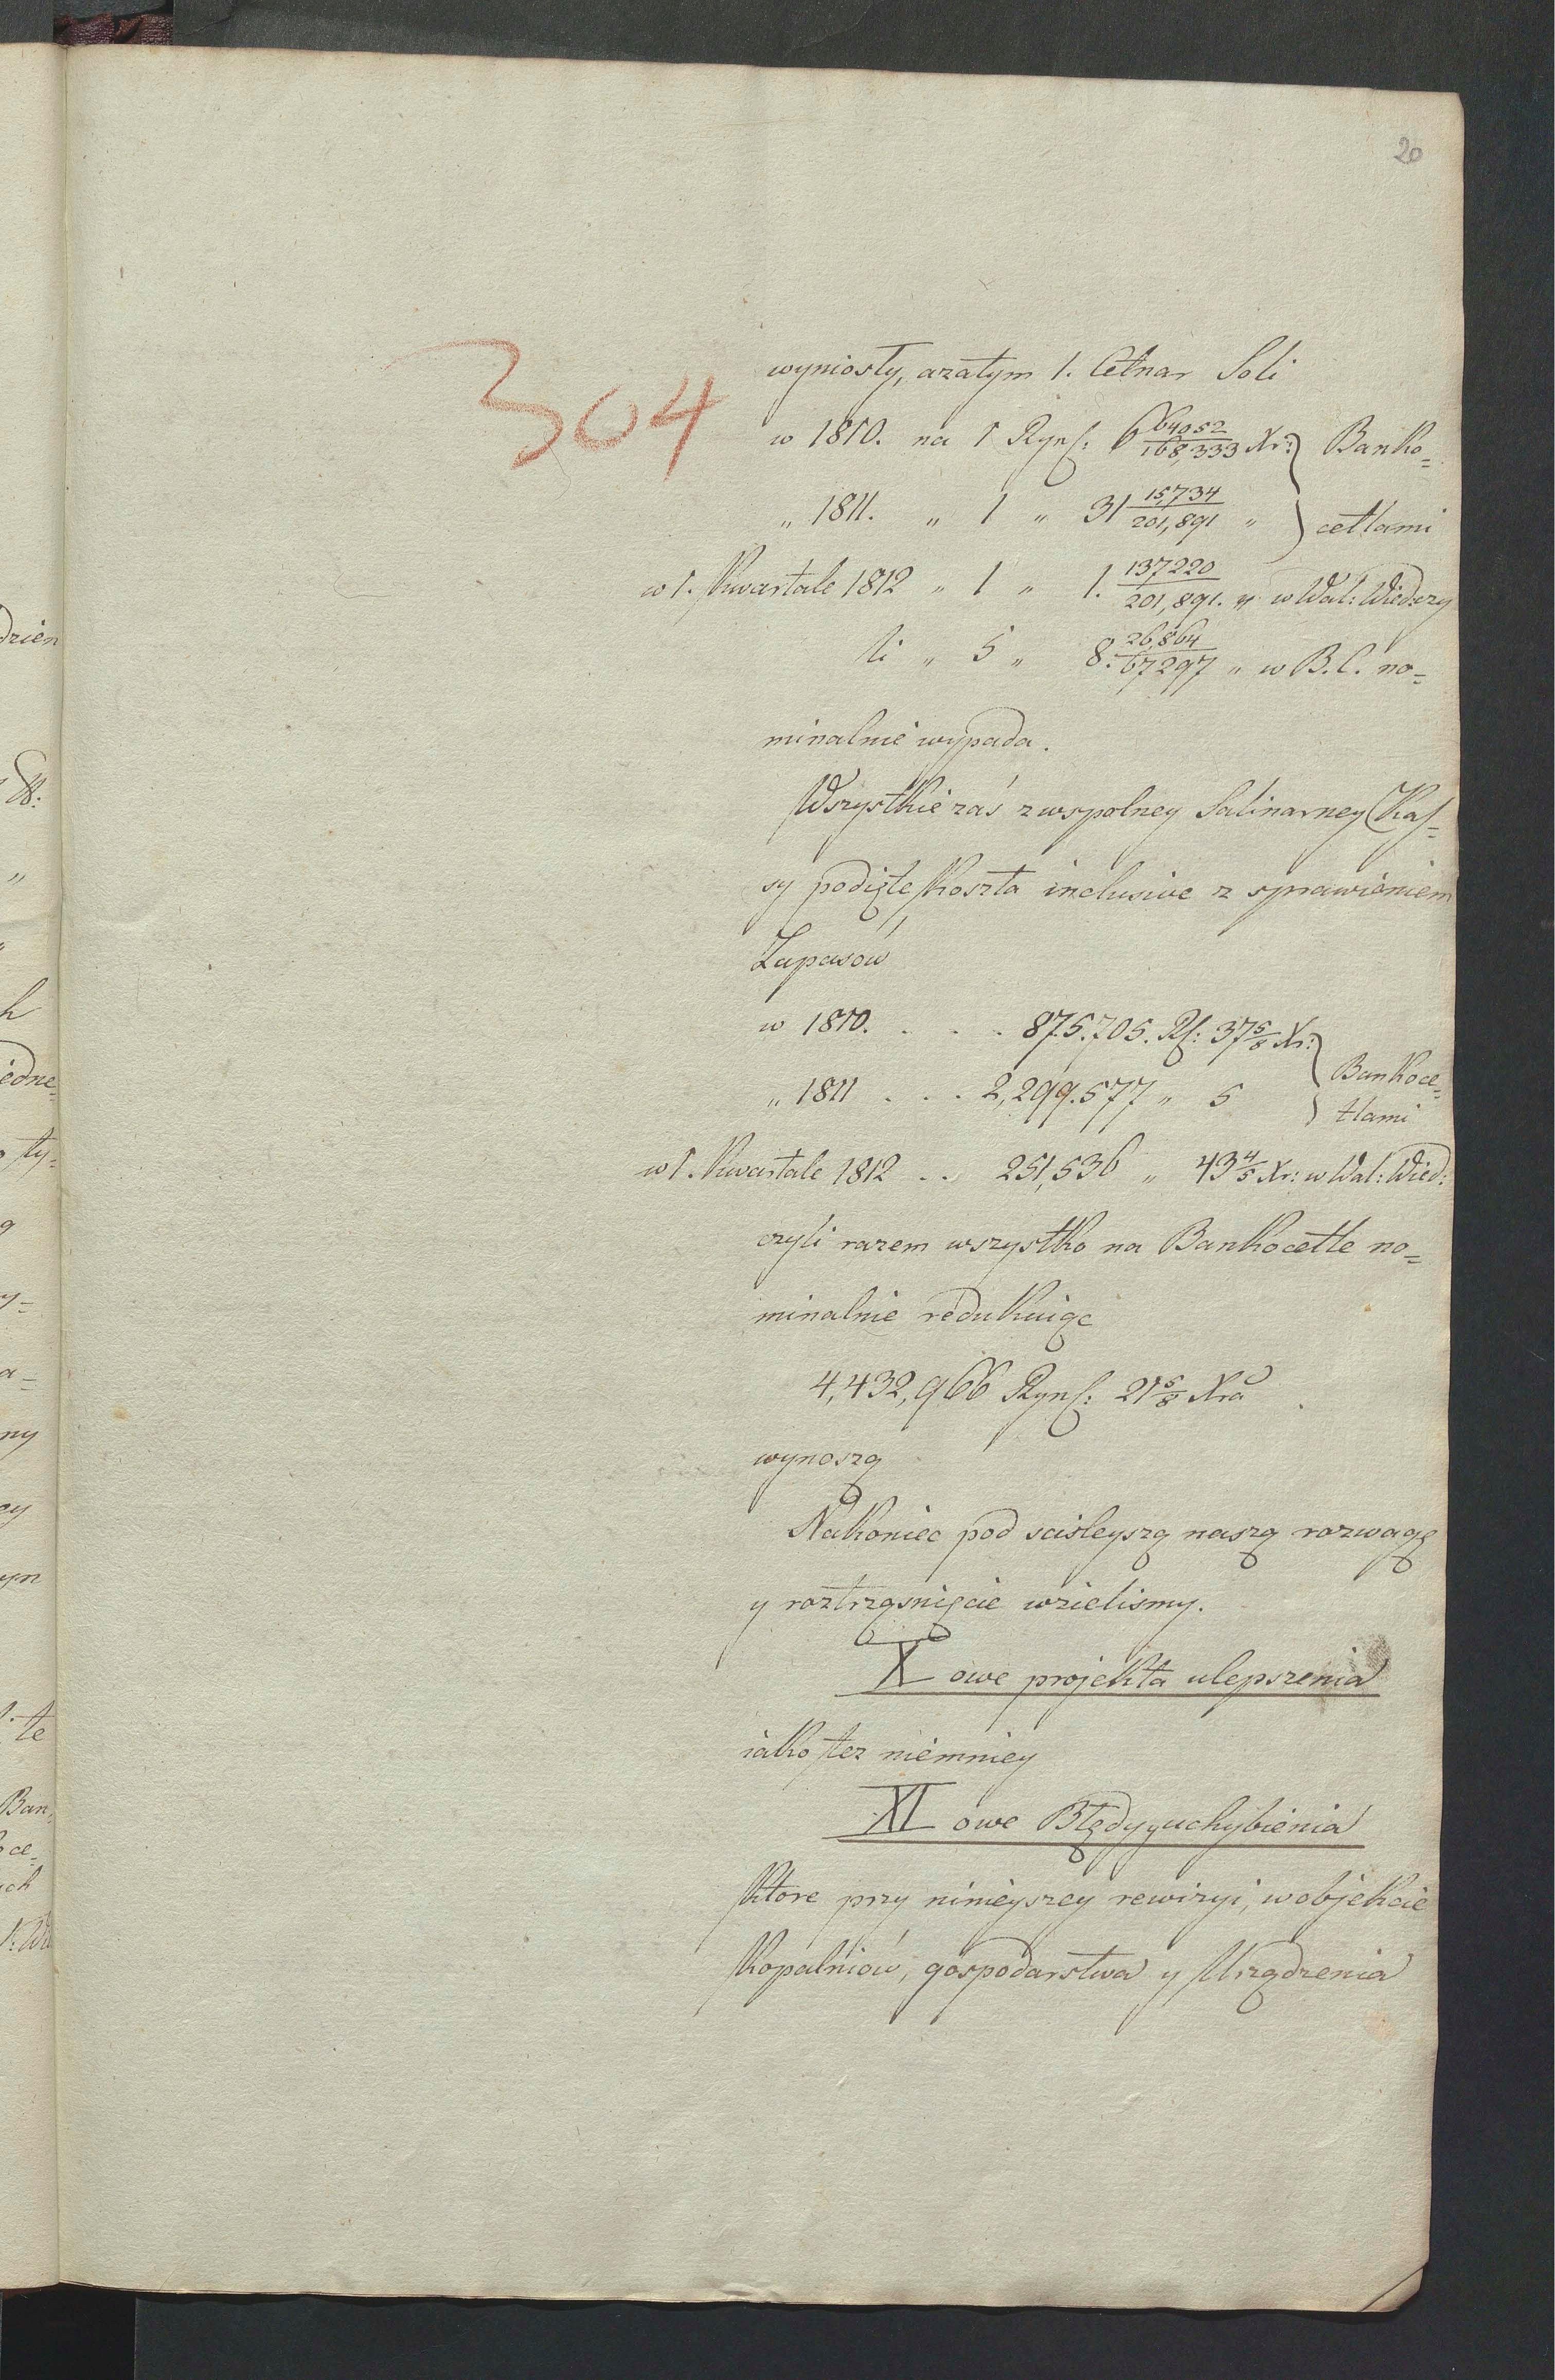 20
304
wyniosły, azatym 1. Cetnar Soli
w 1810. na 1 Rynf: 6 64052/168,333 Xr: } Banko=
„ 1811. „ 1 „ 31 15,734/201,891 „ } cetlami
w 1. Kwartale 1812 „ 1 „ 1. 137220/201,891. „ w Wal: Wied: czy
li „ 5 „ 8. 26,864/67297 „ w B.C. no=
minalnie wypada.
Wszystkie zaś z wspolney Salinarney Kas=
sy podięte Koszta inclusive z sprawieniem
Zapasow
w 1810. . . . 875.705. Rf: 37 5/8 Xr: } Bankoce=
„ 1811 . . . 2,299.577 „ 5 } tlami
w 1. Kwartale 1812 . . 251,536 „ 43 4/5 Xr: w Wal: Wied:
czyli razem wszystko na Bankocetle no=
minalnie redukuiąc
4,432,966 Rynf: 21 5/8 Xra
wynoszą
Nakoniec pod scisleyszą naszą rozwagę
y roztrząsnięcie wzielismy.
X owe projekta ulepszenia
iako tez niemniey
XI owe Błędy y uchybienia
Ktore przy ninieyszey rewizyi, w objekcie
Kopalniow, gospodarstwa y Urządzenia